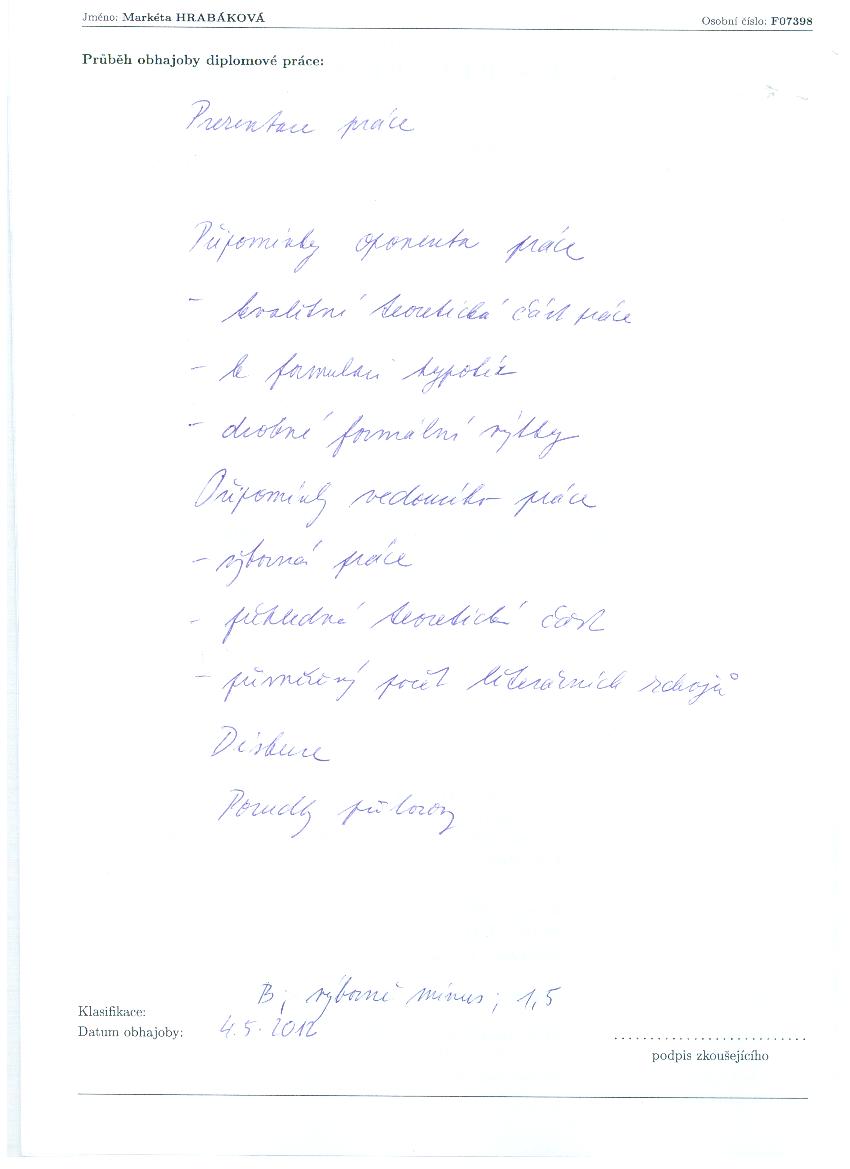 Jméno: Markéta HRABÁKOVÁ
Osobní číslo: F07398
Průběh obhajoby diplomové práce:
Prezentace práce
Připomínky oponenta práce
- kvalitní teoretická část práce
- k formulaci hypotéz
- drobné formální výtky
Připomínky vedoucího práce
- výborná práce
- přehledná teoretická část
- přiměřený počet literárních zdrojů
Diskuze
Posudky přiloženy
B; výborně mínus; 1,5
Klasifikace:
4.5.2012
Datum obhajoby:
podpis zkoušejícího